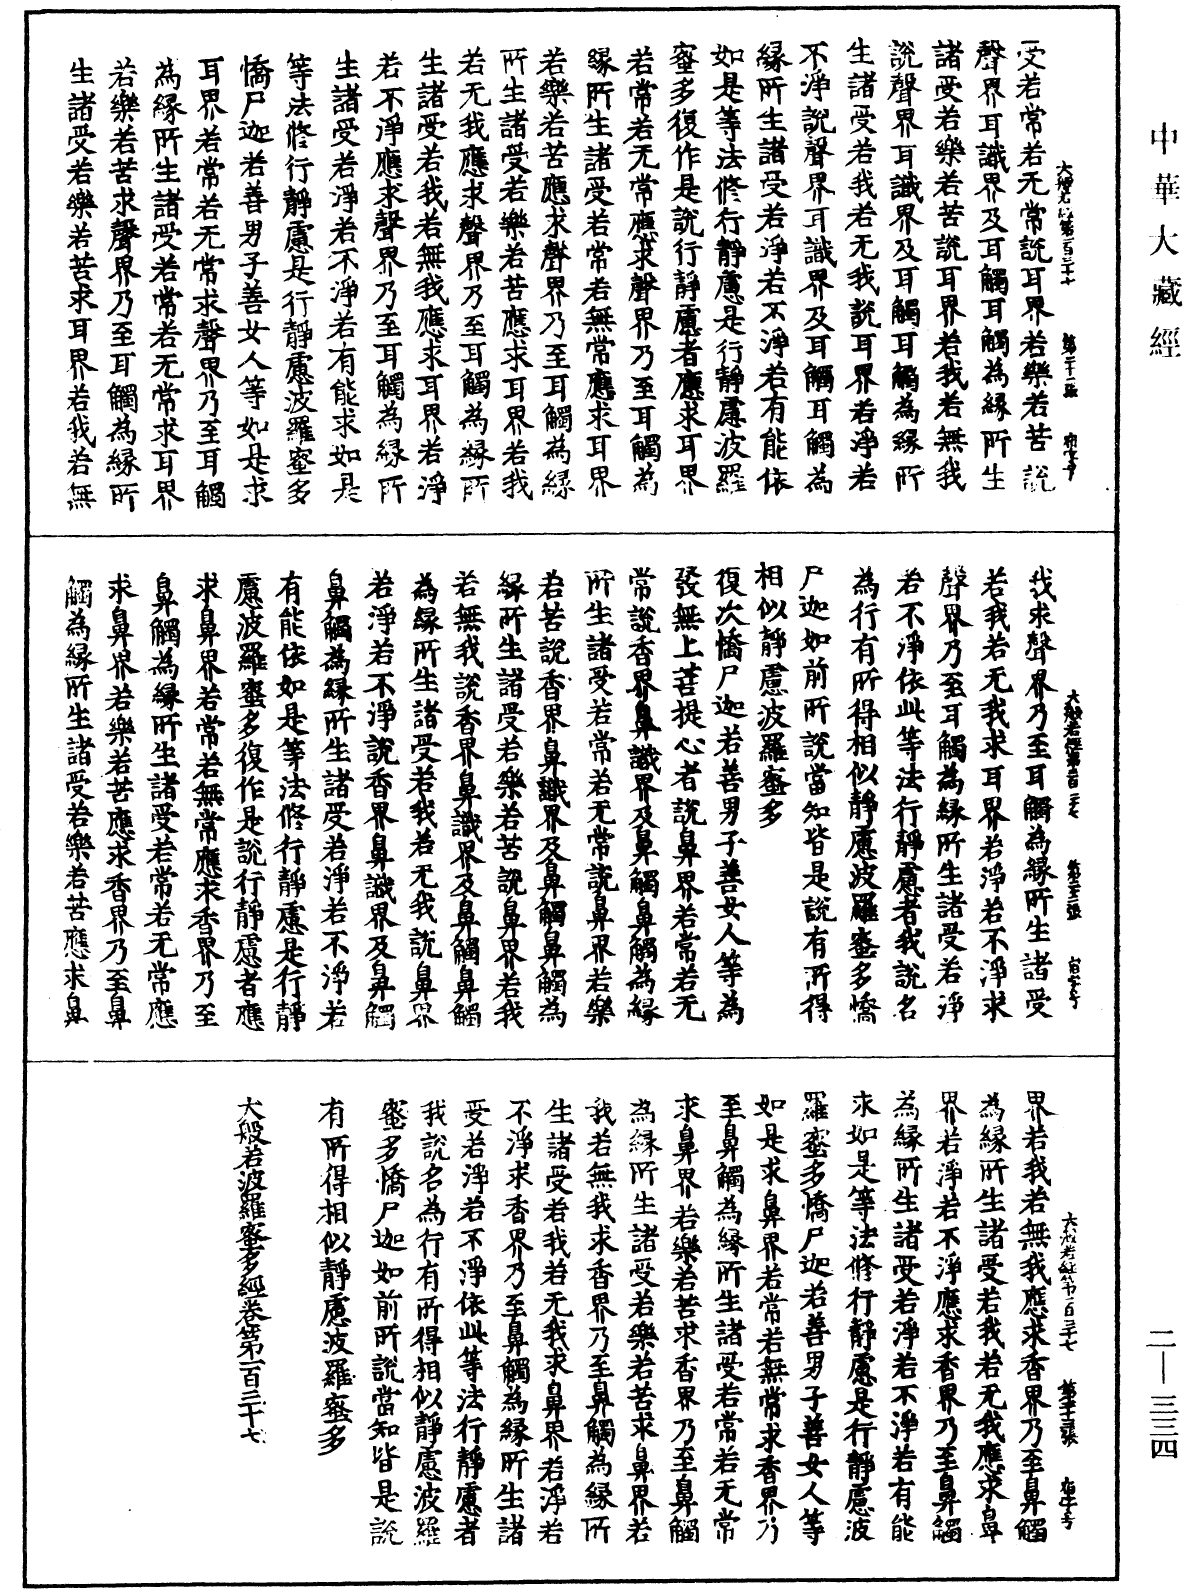 中華大藏經
二—三三四
受若常若无常說耳界若樂若苦說
聲界耳識界及耳觸耳觸為緣所生
諸受若樂若苦說耳界若我若無我
說聲界耳識界及耳觸耳觸為緣所
生諸受若我若无我說耳界若淨若
不淨說聲界耳識界及耳觸耳觸為
緣所生諸受若淨若不淨若有能依
如是等法修行靜慮是行靜慮波羅
蜜多復作是說行靜慮者應求耳界
若常若无常應求聲界乃至耳觸為
緣所生諸受若常若無常應求耳界
若樂若苦應求聲界乃至耳觸為緣
所生諸受若樂若苦應求耳界若我
若无我應求聲界乃至耳觸為緣所
生諸受若我若無我應求耳界若淨
若不淨應求聲界乃至耳觸為緣所
生諸受若淨若不淨若有能求如是
等法修行靜慮是行靜慮波羅蜜多
憍尸迦若善男子善女人等如是求
耳界若常若无常求聲界乃至耳觸
為緣所生諸受若常若无常求耳界
若樂若苦求聲界乃至耳觸為緣所
生諸受若樂若苦求耳界若我若無
我求聲界乃至耳觸為緣所生諸受
若我若无我求耳界若淨若不淨求
聲界乃至耳觸為緣所生諸受若淨
若不淨依此等法行靜慮者我說名
為行有所得相似靜慮波羅蜜多憍
尸迦如前所說當知皆是說有所得
相似靜慮波羅蜜多
復次憍尸迦若善男子善女人等為
發無上菩提心者說鼻界若常若无
常說香界鼻識界及鼻觸鼻觸為緣
所生諸受若常若无常說鼻界若樂
若苦說香界鼻識界及鼻觸鼻觸為
緣所生諸受若樂若苦說鼻界若我
若無我說香界鼻識界及鼻觸鼻觸
為緣所生諸受若我若无我說鼻界
若淨若不淨說香界鼻識界及鼻觸
鼻觸為緣所生諸受若淨若不淨若
有能依如是等法修行靜慮是行靜
慮波羅蜜多復作是說行靜慮者應
求鼻界若常若無常應求香界乃至
鼻觸為緣所生諸受若常若无常應
求鼻界若樂若苦應求香界乃至鼻
觸為緣所生諸受若樂若苦應求鼻
界若我若無我應求香界乃至鼻觸
為緣所生諸受若我若无我應求鼻
界若淨若不淨應求香界乃至鼻觸
為緣所生諸受若淨若不淨若有能
求如是等法修行靜慮是行靜慮波
羅蜜多憍尸迦若善男子善女人等
如是求鼻界若常若無常求香界乃
至鼻觸為緣所生諸受若常若无常
求鼻界若樂若苦求香界乃至鼻觸
為緣所生諸受若樂若苦求鼻界若
我若無我求香界乃至鼻觸為緣所
生諸受若我若无我求鼻界若淨若
不淨求香界乃至鼻觸為緣所生諸
受若淨若不淨依此等法行靜慮者
我說名為行有所得相似靜慮波羅
蜜多憍尸迦如前所說當知皆是說
有所得相似靜慮波羅蜜多
大般若波羅蜜多經卷第一百三十七